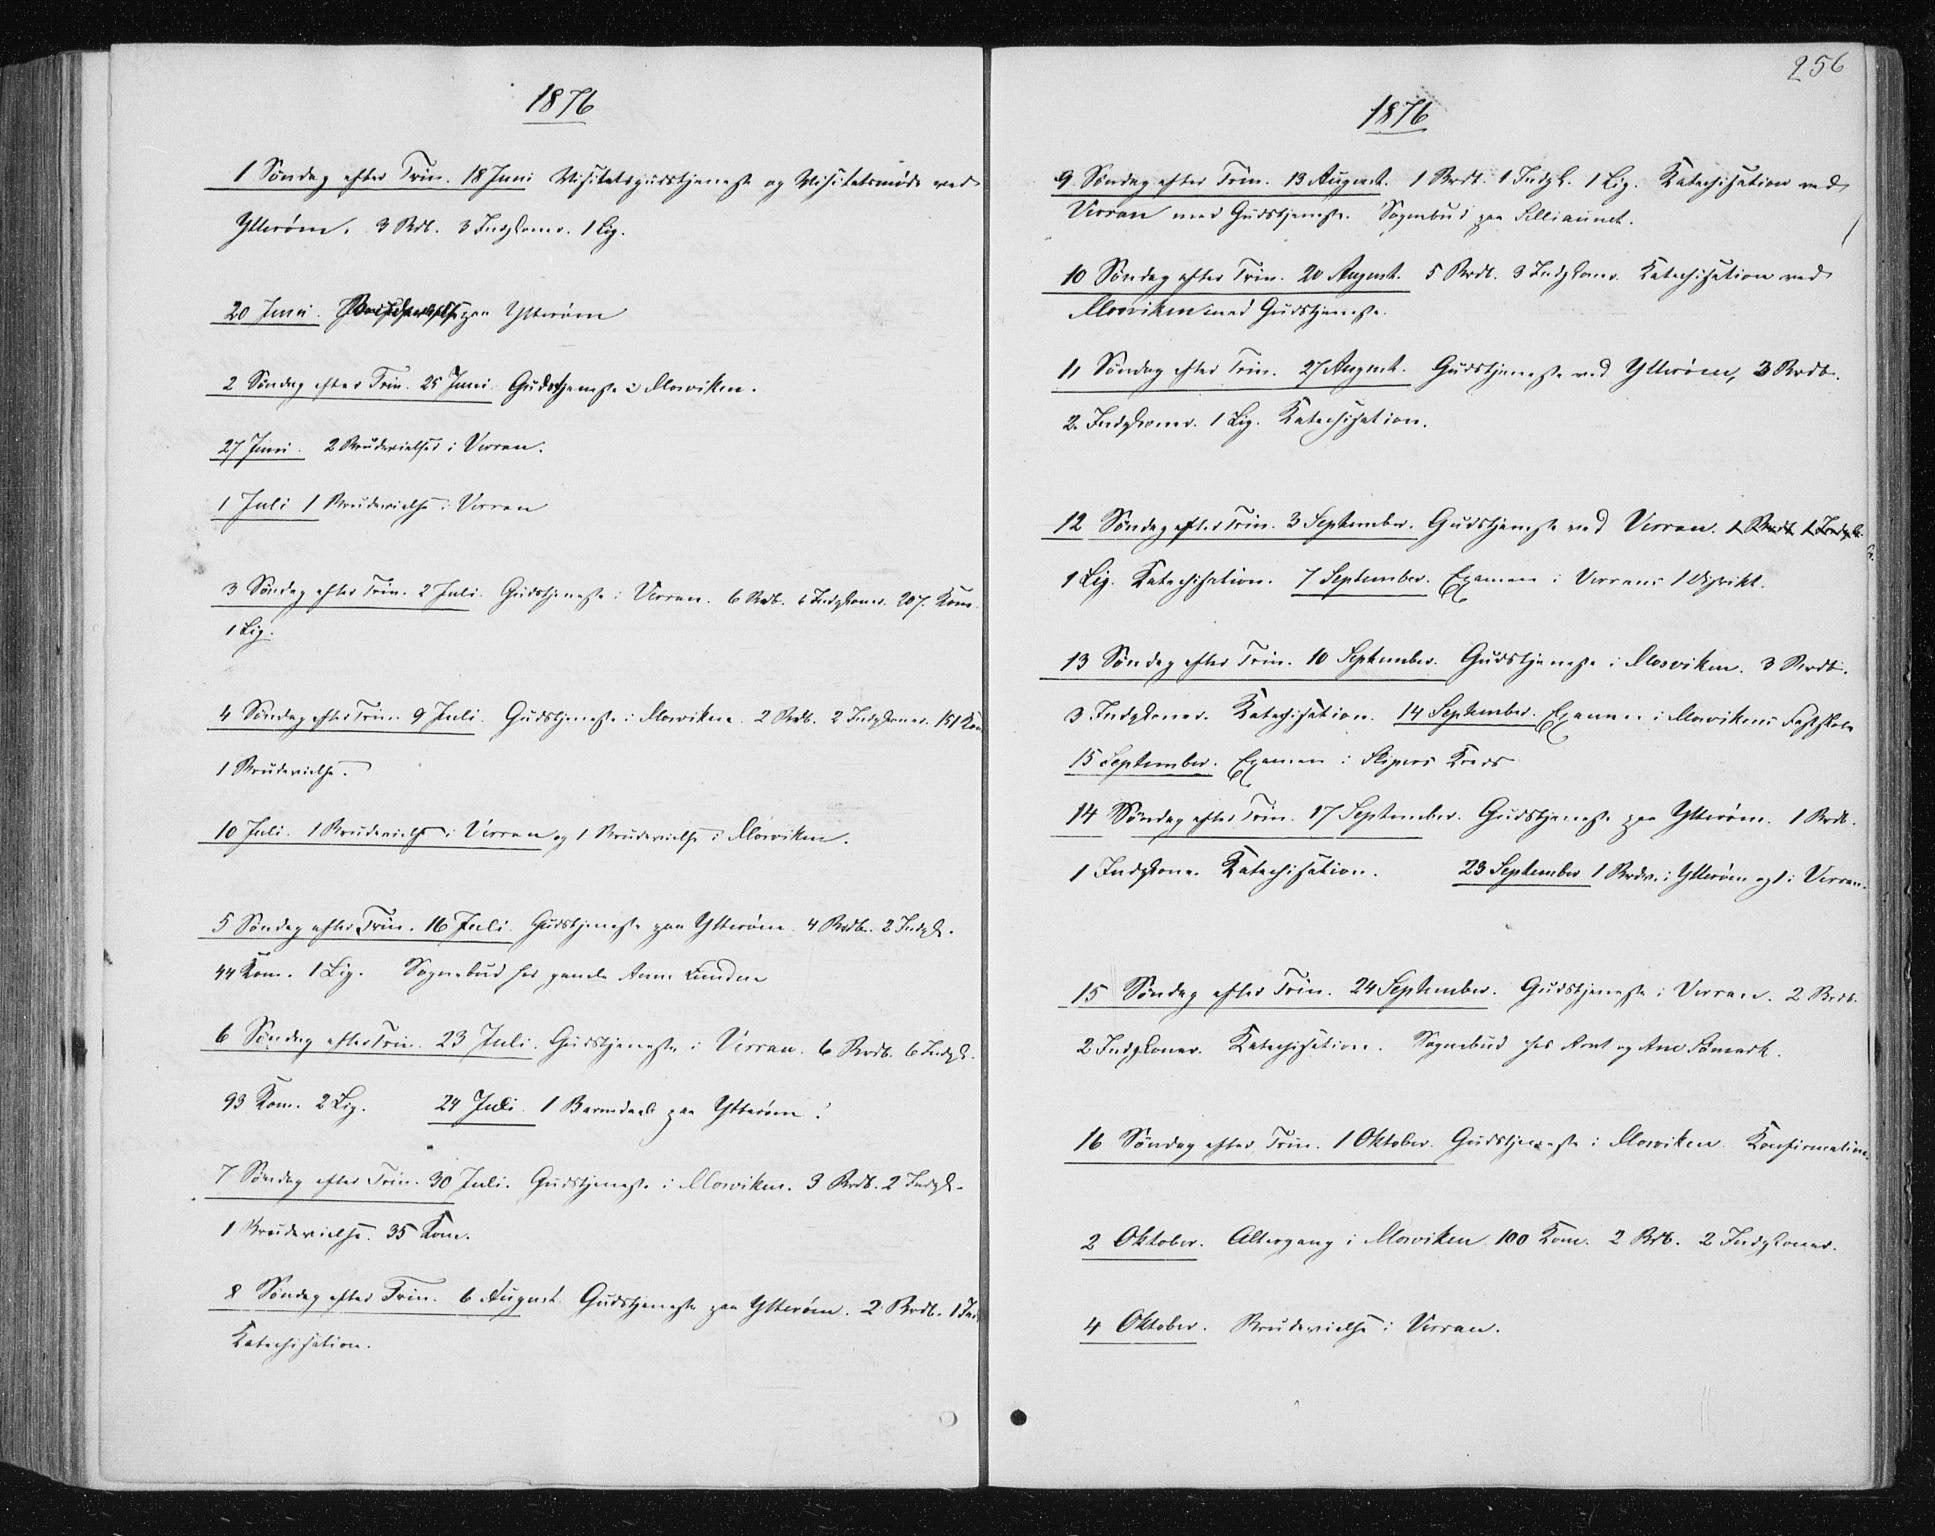 1876
1 Søndag efter Trin. 18 Juni Visitatsgudstjeneste og Visitatsmøde ved
Ytterøen. 3 Brdb. 3 Indgkoner. 1 Lig.
20 Juni. paa Ytterøen
2 Søndag efter Trin. 25 Juni. Gudstjeneste i Mosviken.
27 Juni. 2 Brudevielser i Verran.
1 Juli 1 Brudevielse i Verran
3 Søndag efter Trin. 2 Juli. Gudstjeneste i Verran. 6 Brdb. 6 Indgkoner. 207. Kom.
1 Lig.
4 Søndag efter Trin. 9 Juli. Gudstjeneste i Mosviken. 2 Brdb. 2 Indgkoner. 151 Kom
1 Brudevielse.
10 Juli. 1 Brudevielse i Verran og 1 Brudevielse i Mosviken.
5 Søndag efter Trin. 16 Juli. Gudstjeneste paa Ytterøen. 4 Brdb. 2 Indgk.
44 Kom. 1 Lig. Sognebud hos gamle Anne Lunden
6 Søndag efter Trin. 23 Juli. Gudstjeneste i Verran. 6 Brdb. 6 Indgk.
93 Kom. 2 Lig. 24 Juli. 1 Barnedaab paa Ytterøen.
7 Søndag efter Trin. 30 Juli. Gudstjeneste i Mosviken. 3 Brdb. 2 Indgk.
1 Brudevielse. 35 Kom.
8 Søndag efter Trin. 6 August. Gudstjeneste paa Ytterøen. 2 Brdb. 1 Ind
Katechisation.
256
1876
9 Søndag efter Trin. 13 August. 1 Brdb. 1 Indgk. 1 Lig. Katechisation ved
Verran med Gudstjeneste. Sognebud paa Filliaunet.
10 Søndag efter Trin. 20 August. 5 Brdb. 3 Indgkoner. Katechisation ved
Mosviken med Gudstjeneste.
11 Søndag efter Trin. 27 August. Gudstjeneste ved Ytterøen, 3 Brdb.
2 Indgkoner. 1 Lig. Katechisation.
12 Søndag efter Trin. 3 September. Gudstjeneste ved Verran. 1 Brdb 1 Indgk.
1 Lig. Katechisation. 7 September. Examen i Verrans 1 Distrikt.
13 Søndag efter Trin. 10 September. Gudstjeneste i Mosviken. 3 Brdb.
3 Indgkoner. Katechisation. 14 September. Examen i Mosvikens Fastskole
15 September. Examen i Kreds
14 Søndag efter Trin. 17 September. Gudstjeneste paa Ytterøen. 1 Brdb.
1 Indgkone. Katechisation. 23 September 1 Brdv. i Ytterøen og 1 i Verran.
15 Søndag efter Trin. 24 September. Gudstjeneste i Verran. 2 Brdb.
2 Indgkoner. Katechisation. Sognebud hos Arnt og Ane Sømark.
16 Søndag efter Trin. 1 Oktober. Gudstjeneste i Mosviken. Konfirmation.
2 Oktober. Altergang i Mosviken. 100 Kom. 2 Brdb. 2 Indgkoner.
4 Oktober. Brudevielse i Verran.